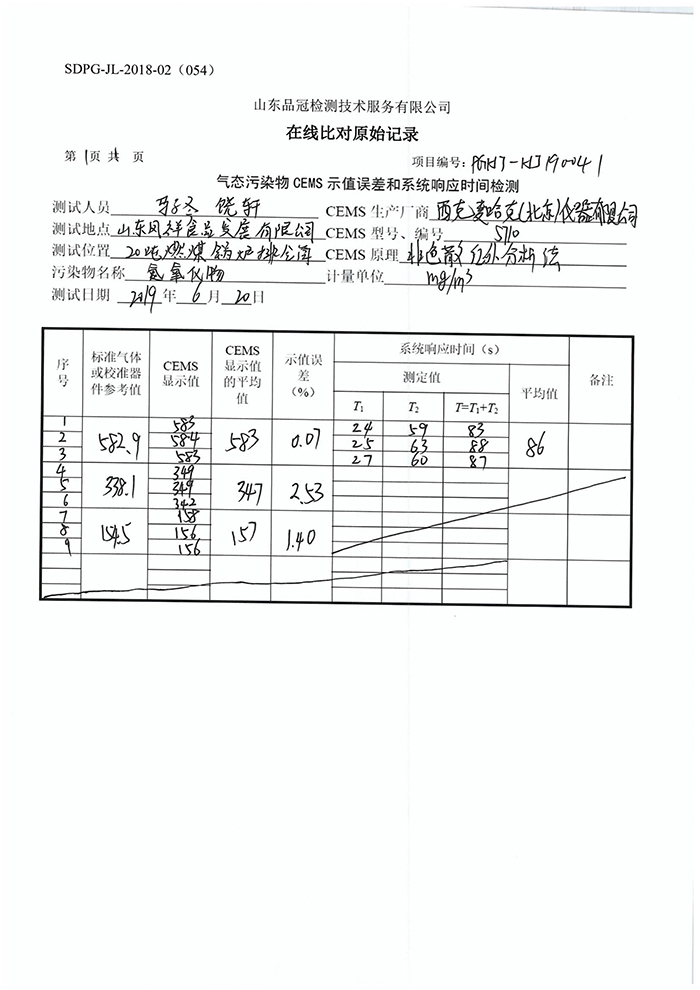 SDPG-JL-2018-02（054）
山东品冠检测技术服务有限公司
在线比对原始记录
第 1 页 共 页 项目编号：PGKJ-KJ190041
气态污染物 CEMS 示值误差和系统响应时间检测
测试人员 饶轩 CEMS 生产厂商 西克麦哈克(北京)仪器有限公司
测试地点 山东凤祥食品发展有限公司 CEMS 型号、编号 S710
测试位置 20吨燃煤锅炉排 CEMS 原理 非色散红外分析法
污染物名称 氮氧化物 计量单位 mg/m3
测试日期 2019 年 6 月 20 日
序号 标准气体或校准器件参考值 CEMS 显示值 CEMS 显示值的平均值 示值误差（%） 系统响应时间（s） 备注
测定值 平均值
T1 T2 T=T1+T2
1 582.9 583 583 0.07 24 59 83 86
2 584 25 63 88
3 583 27 60 87
4 338.1 349 347 2.53
5 349
6 342
7 154.5 158 157 1.40
8 156
9 156